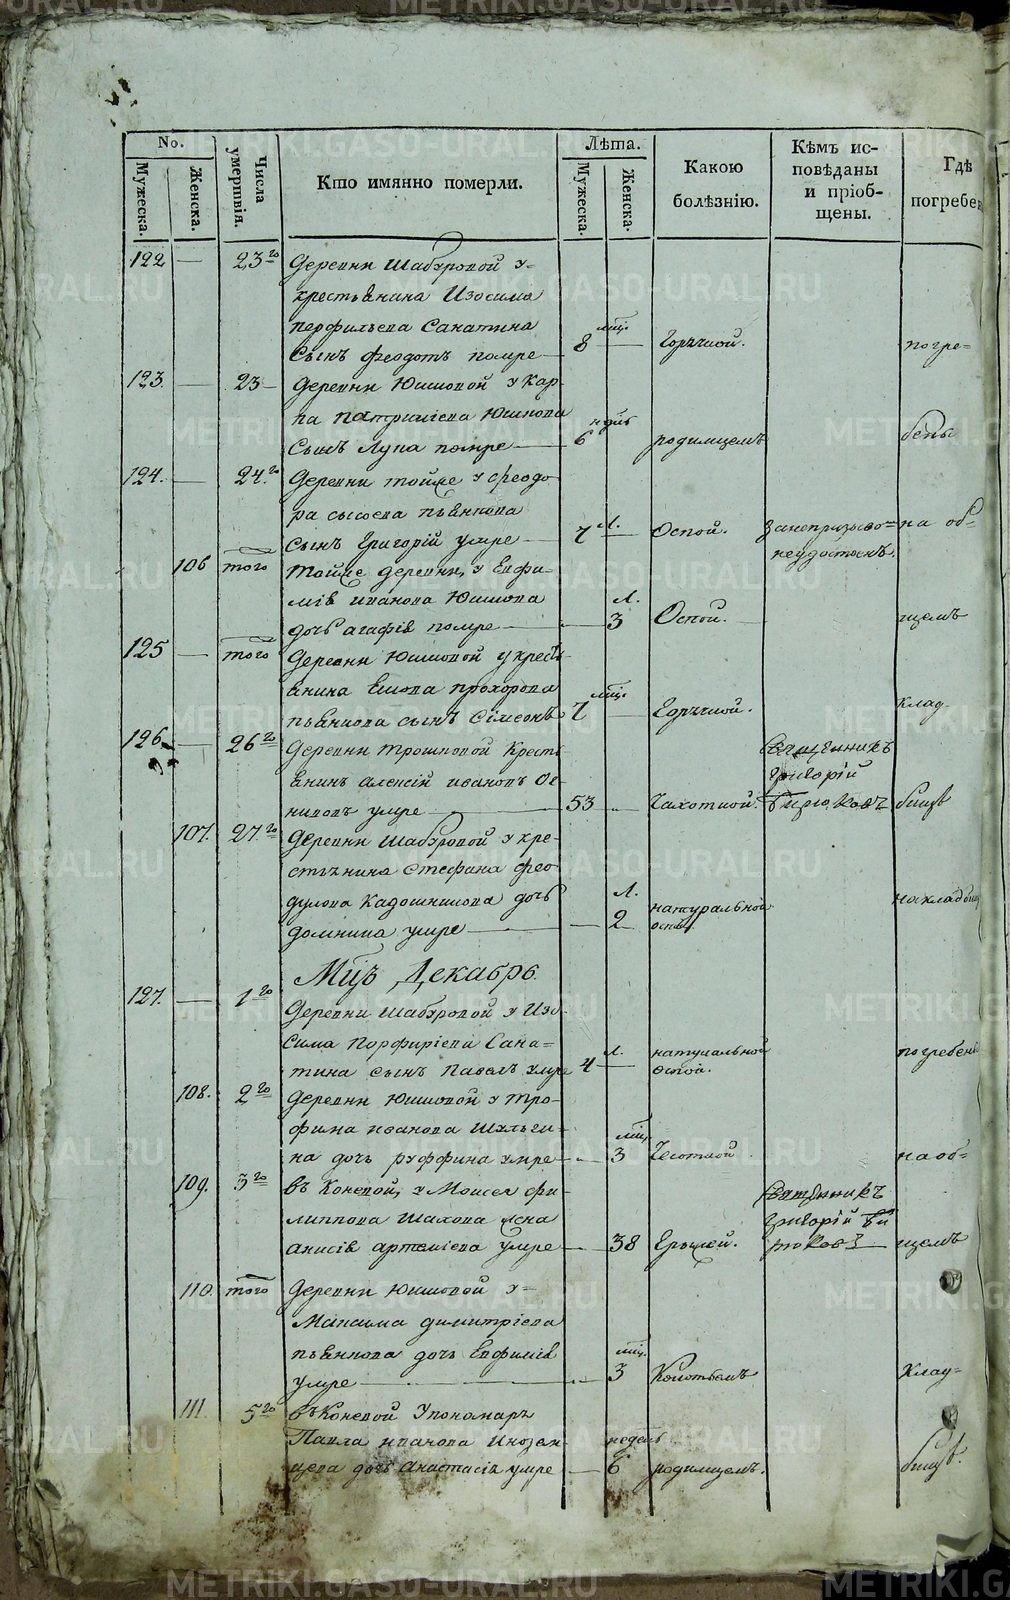 METRIKI.GASO-URAL.RU
No.
Мужеска.
Женска.
Числа умертвія.
Кто имянно померли.
Лѣта.
Мужеска.
Женска.
Какою болѣзнію.
Кѣмъ исповѣданы и пріобщены.
Гдѣ погребен
122 — 23го Деревни Шабуровой у
крестьянина Изосима
перфильева Санатина
мц.
сынъ Феодотъ помре — 8 — Горячкой. погре=
123. — 23 — Деревни Юшковой у Кар
па патрикіева Юшкова
сынъ Лупа помре — 6 родимцемъ бены
124. — 24.го Деревни тойже у Феодо
ра сысоева пьянкова
сынъ Григорій умре — 7 л. — Оспой. на об=
неудостоенъ.
106 того тойже деревни, у Евфи=
мія иванова Юшкова
дочь агафія помре — 3 л. Оспой. щемъ
125 — того Деревни Юшковой у крест
янина прохорова
пьянкова сынъ Симеонъ 7 мц. — Горячкой. клад.
126 — 26го Деревни трошковой Крест
янинъ алексій ивановъ Ос
иповъ умре — 53 „ Чахоткой. Священникъ Григорій Бирюковъ бищѣ
107. 27.го Деревни шабуровой у кре=
стьянина Стефана фео
дулова Кадошникова дочь
домника умре — — 2 л. натуральной оспой на кладбищ
Мцъ Декабрь.
127. — 1го Деревни шабуровой у Изо
сима Порфиріева Сана=
тина сынъ Павелъ умре 4 л. — натуральной оспой. погребены
108. 2го Деревни Юшковой у тро=
фима иванова Шульги=
на дочь руффина умре — 3 мц. Чесоткой на об=
109. 3го въ Коневой, у Моисея фи=
липпова Шахова жена
анисія артеміева умре — 38 Грыжей. Священникъ Григорій Бирюковъ щемъ
110. того Деревни Юшковой у=
Максима димитріева
пьянкова дочь Евфимія
умре — 3 мц. Колотьемъ клад=
111 5го въ Коневой Упономаря
Павла иванова Инозем=
цева дочь Анастасія умре — 6 недель родимцемъ. бищѣ.